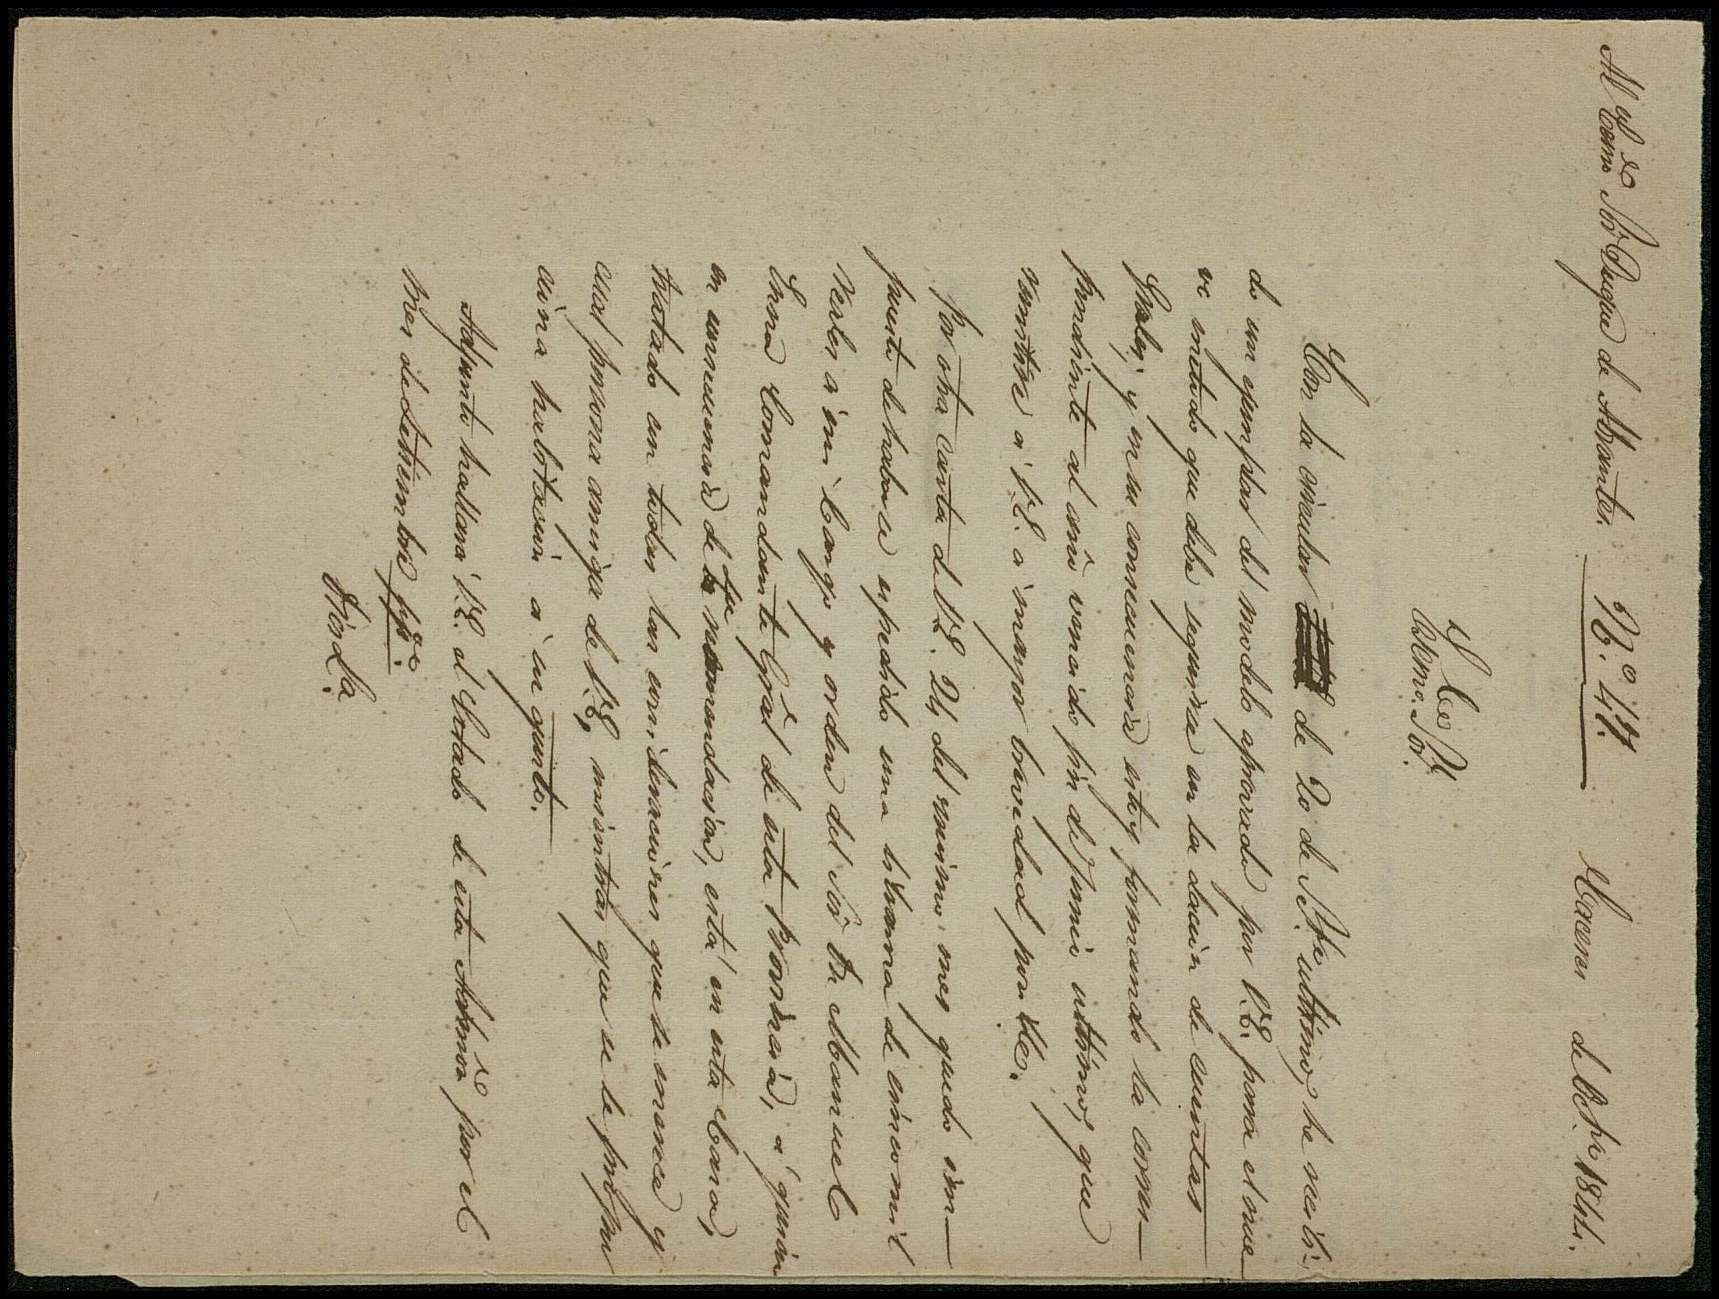 Al Exmo. Sor. Duque de Abrantes. N.º 44. Caceres de 8bre 1844.
Exmo. Sor.
Con la circular de 20 de Stbre ultimo, he recibi-
do un ejemplar del modelo aprovado por V.E. para el nue-
vo metodo que debe seguirse en la dacion de cuentas
y en su consecuencia estoy formando la corres-
pondiente al año vencido fin de Junio ultimo, que
remitiré á V.E. á mayor brevedad posible.
Por otra carta de V.E. 24 del mismo mes quedo im-
puesto de haberse espedido una libranza de cinco mil
reales á mi cargo y orden del Sor. Dn. Manuel
Comandante Gral. de esta Provincia, á quien
en consecuencia de su recomendacion, está en esta Casa,
tratado con todas las consideraciones que se merece y
cual persona amiga de V.E. mientras que se le propor-
ciona habitacion á su gusto.
Adjunto hallará V.E. el Estado de esta Admon. por el
mes de Setiembre ppdo.
Dios &a.